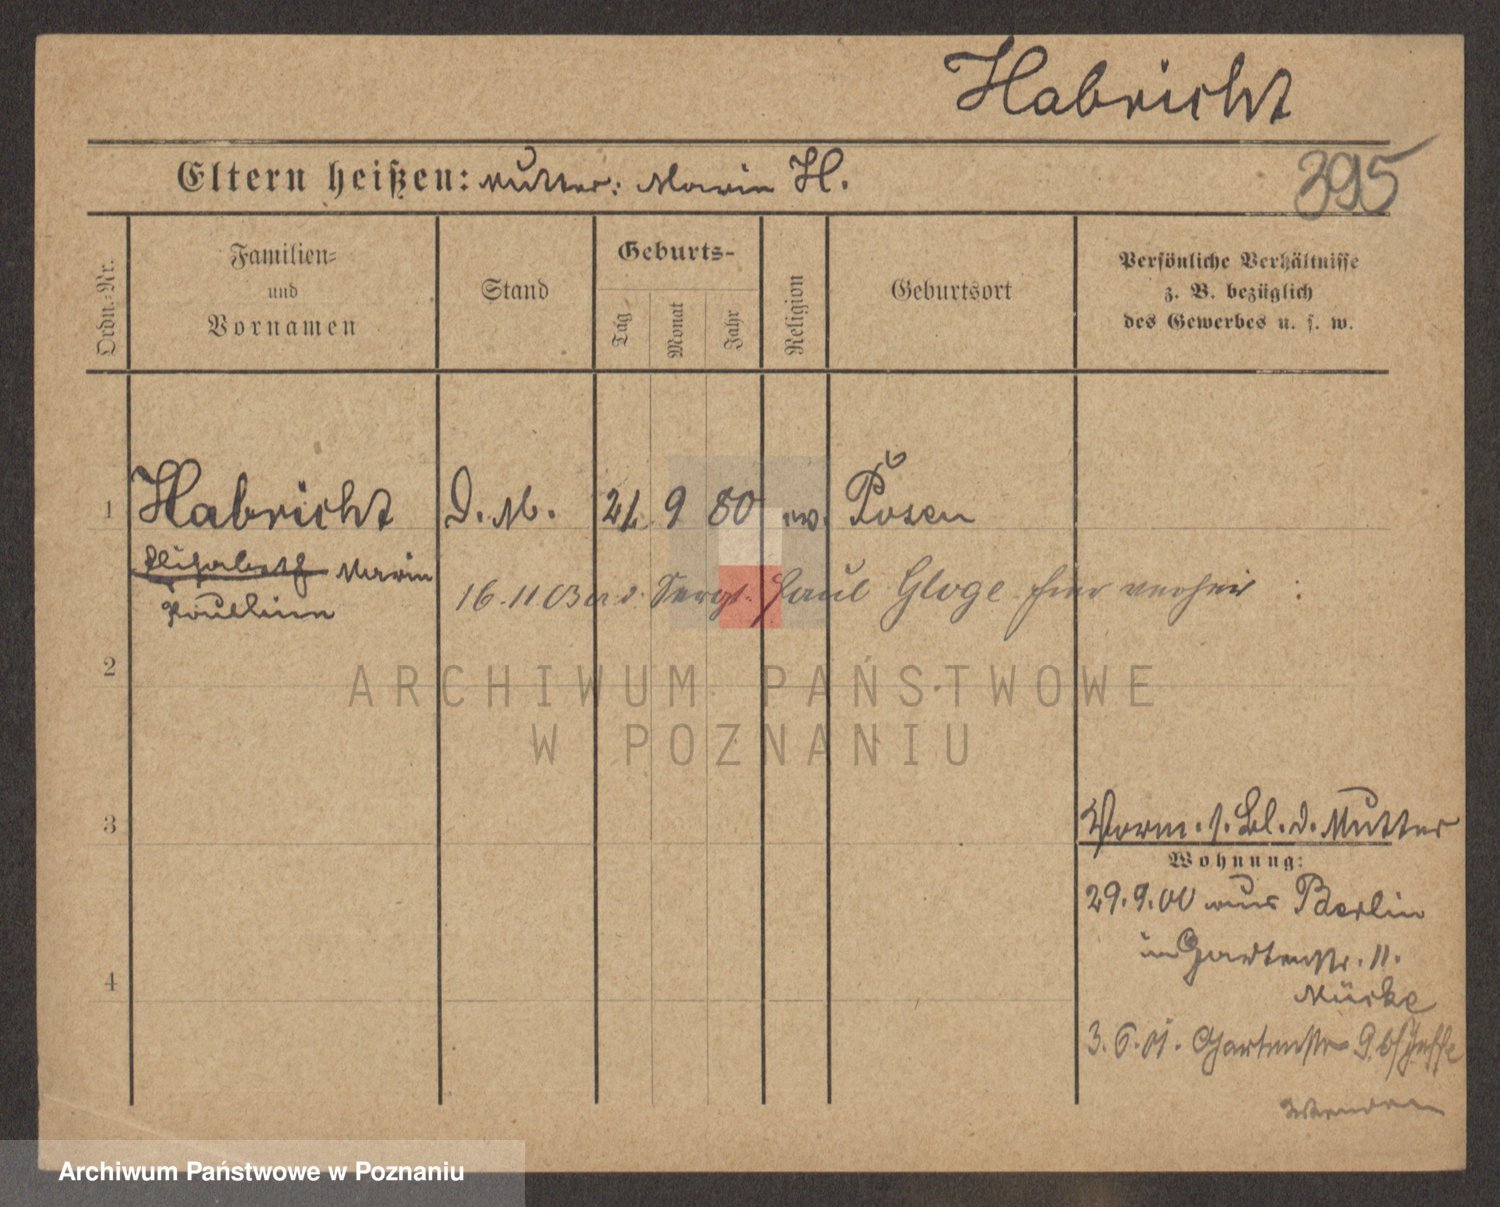 Habricht
Eltern heißen: Mutter: Marie H.
395
Ordn.-Nr.
Familien-
und
Vornamen
Stand
Geburts-
Tag
Monat
Jahr
Religion
Geburtsort
Persönliche Verhältnisse
z. B. bezüglich
des Gewerbes u. s. w.
1 Habricht D. M. 21 9 80 ev. Posen
Elisabeth Marie
Pauline
16.11.03 a. d. Sergt. Paul Gloge hier verheir
2
ARCHIWUM PAŃSTWOWE
W POZNANIU
3
Vorm. s. Bl. d. Mutter
Wohnung:
29.9.00 aus Berlin
in Gartenstr. 11.
4
Mücke
3.6.01. Gartenstr 9. b/
Wenden
Archiwum Państwowe w Poznaniu